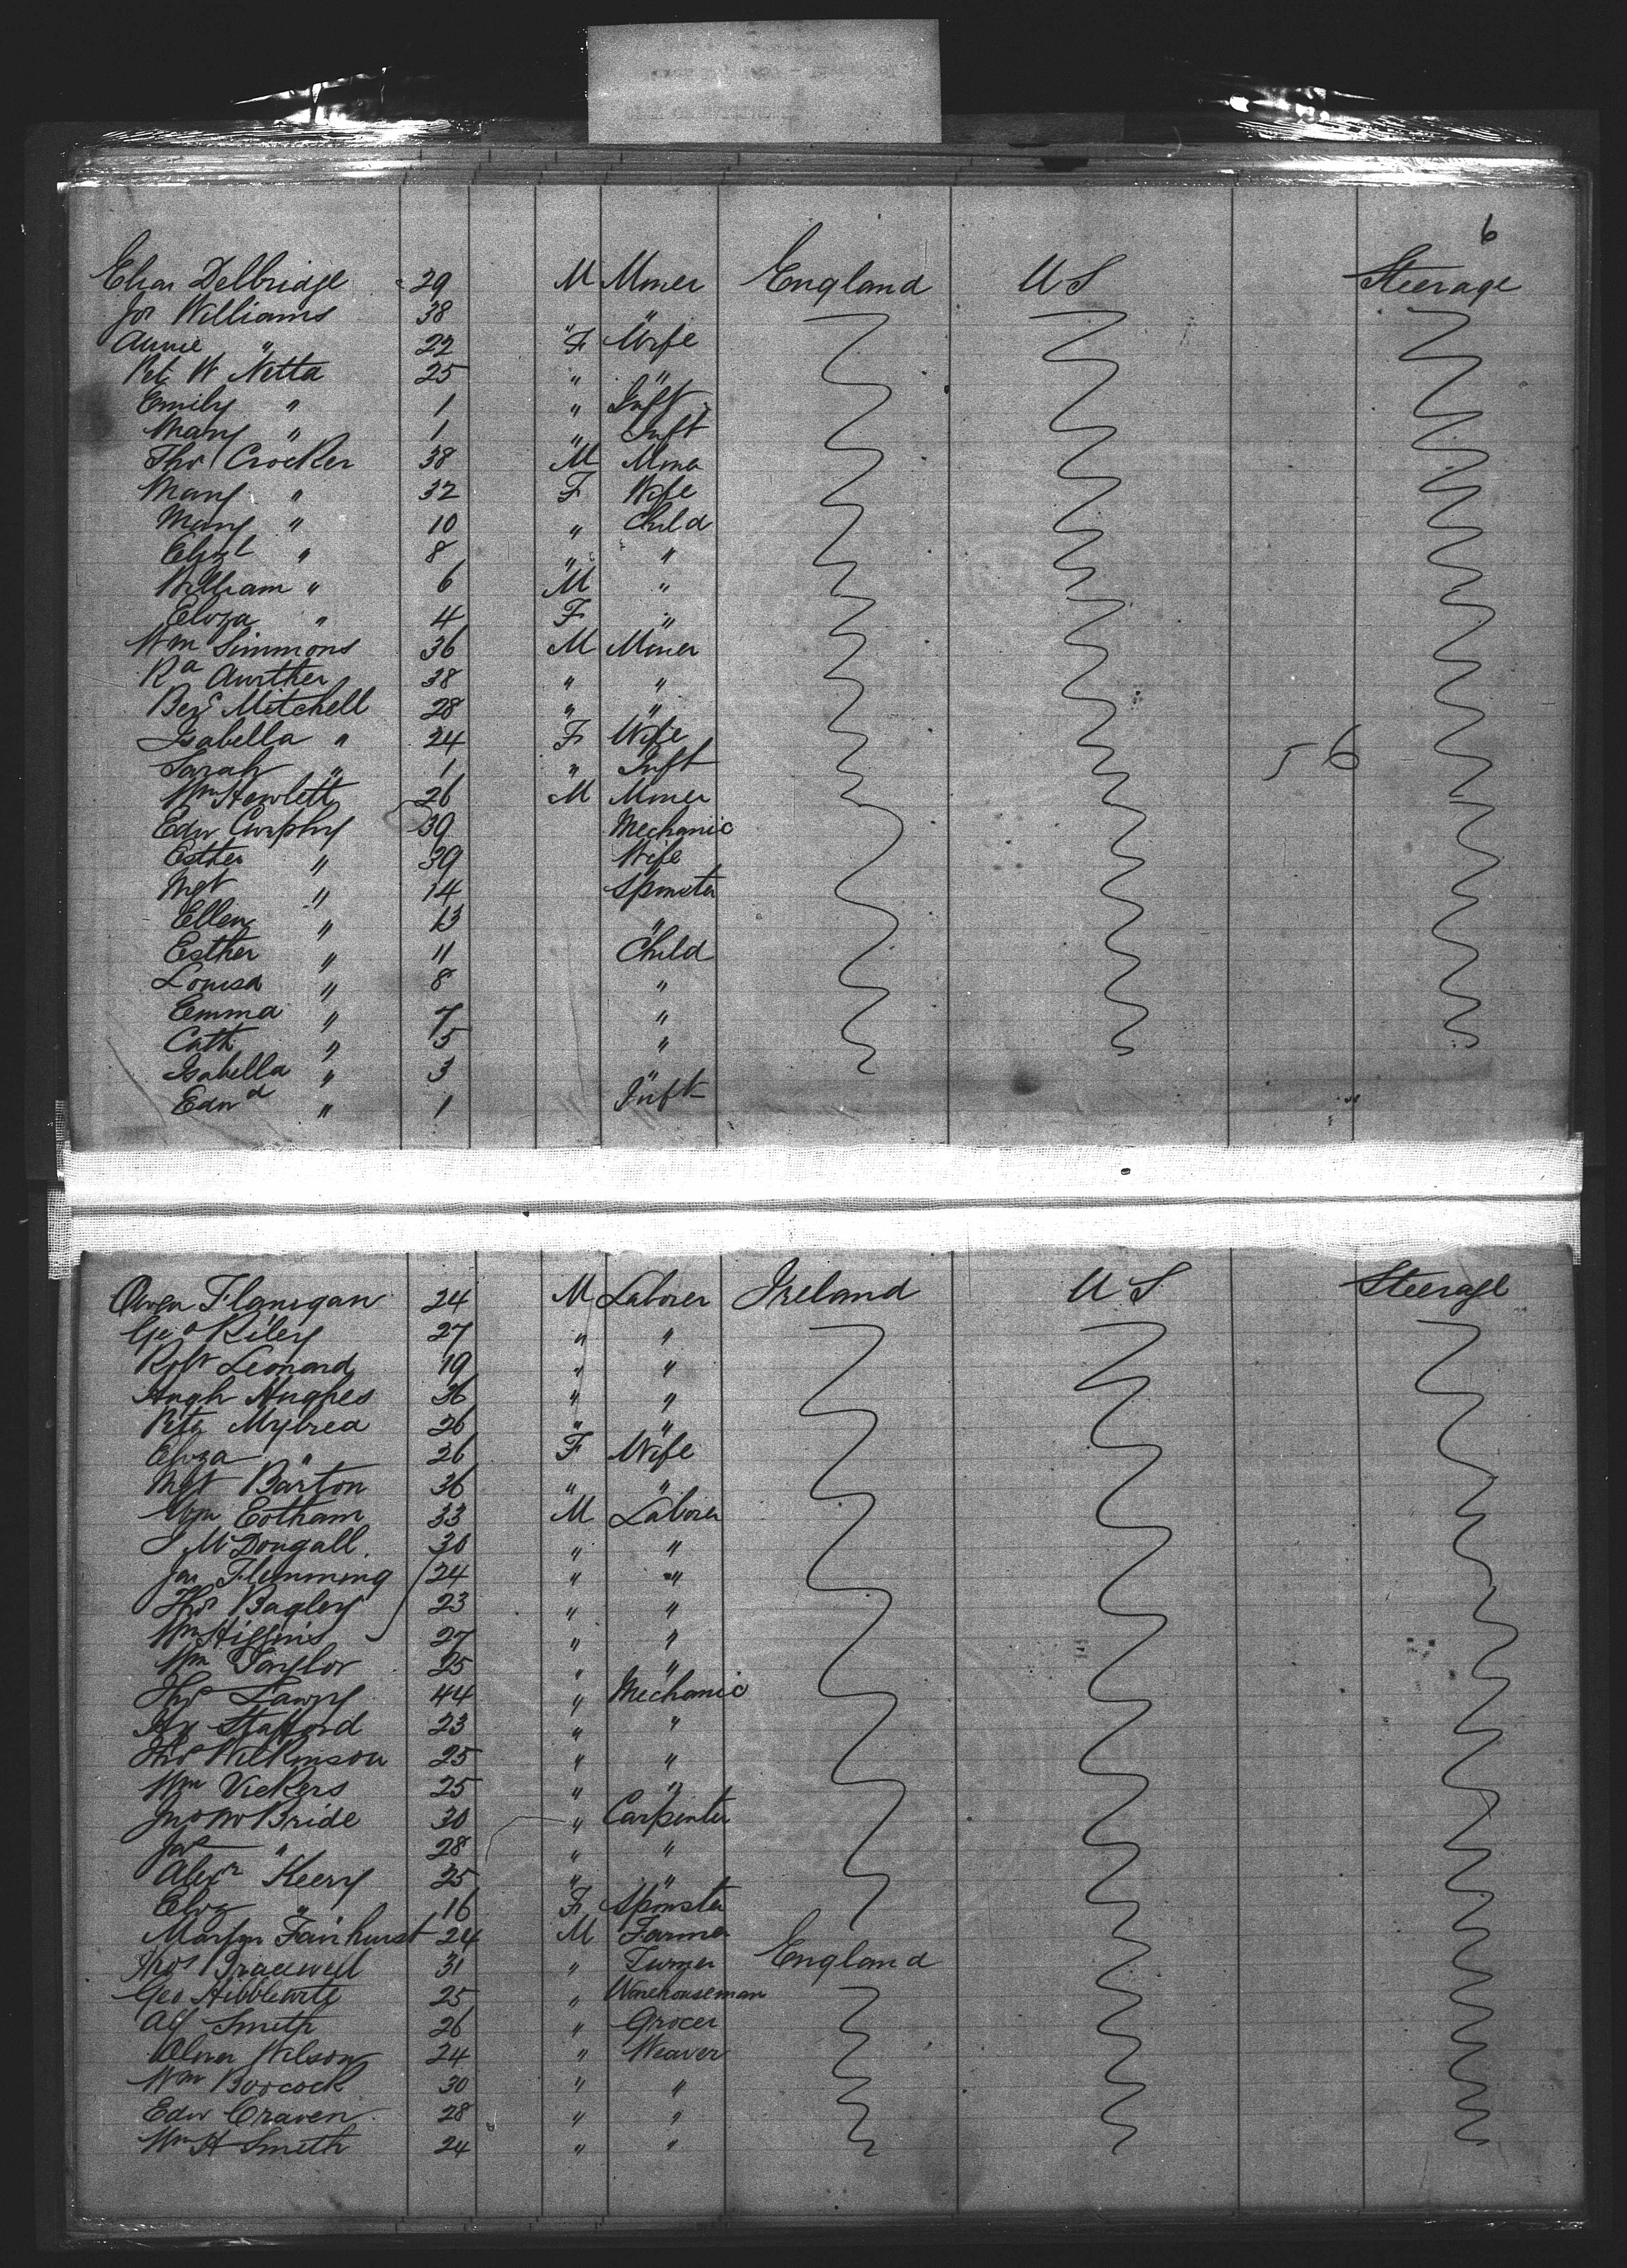 6
Elias Delbridge 29 M Miner England US Steerage
Jos Williams 38 "
Annie " 22 " F Wife
Pet W Netta 25 " "
Emily " 1 " Inft
Mary " 1 " Inft
Thos Crocker 38 M Miner
Mary " 32 F Wife
Mary " 10 " Child
Elizt " 8 " "
William " 6 M "
Eliza " 4 F "
Wm Simmons 36 M Miner
Ra Aurther 38 " "
Benj Mitchell 28 " "
Isabella " 24 F Wife
Sarah " 1 " Inft 56
Wm Howlett 26 M Miner
Edw Curphy 39 Mechanic
Esther " 39 Wife
Mgt " 14 Spinster
Ellen " 13 "
Esther " 11 Child
Louisa " 8 "
Emma " 7 "
Cath " 5 "
Isabella " 3 "
Edwd " 1 Inft
Owen Flanigan 24 M Laborer Ireland US Steerage
Geo Riley 27 " "
Robt Leonard 19 " "
Hugh Hughes 36 " "
Peter Mylrea 26 " "
Eliza " 26 F Wife
Mgt Barton 36 " "
Wm Eotham 33 M Laborer
J McDougall 30 " "
Jas Flemming 24 " "
Thos Bagley 23 " "
Wm Higgins 27 " "
Wm Taylor 25 " "
Thos Lawry 44 " Mechanic
Hy Stafford 23 " "
Thos Wilkinson 25 " "
Wm Vickers 25 " "
Jno McBride 30 " Carpenter
Jas " 28 " "
Alexr Keery 25 " "
Eliz " 16 F Spinster
Martin Fairhurst 24 M Farmer
Thos Bracewell 31 " Turner England
Geo Hibblewite 25 " Warehouseman
Alf Smith 26 " Grocer
Oliver Wilson 24 " Weaver
Wm Boocock 30 " "
Edw Craven 28 " "
Wm H Smith 24 " "